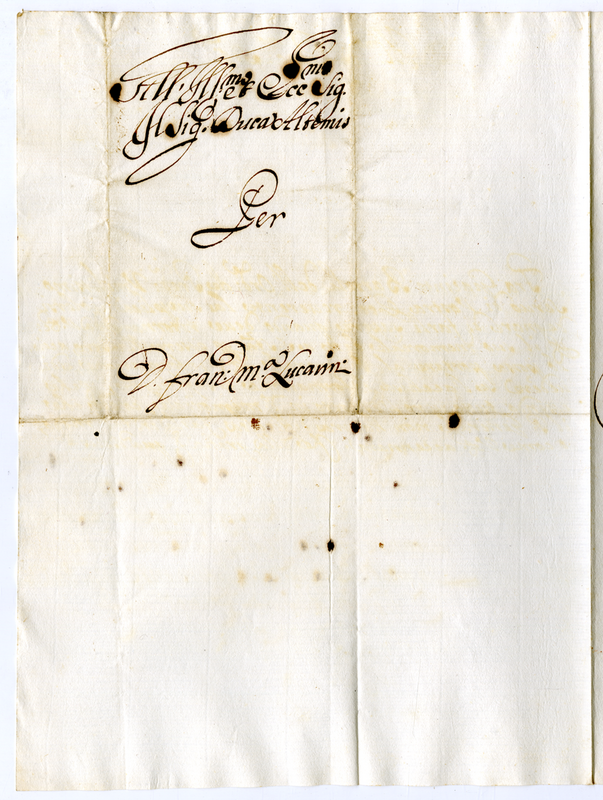 All' Ill.mo et Ecc.mo Sig.
Il Sig. Duca Altemis
Per
D. Fran: M.a Lucarin: